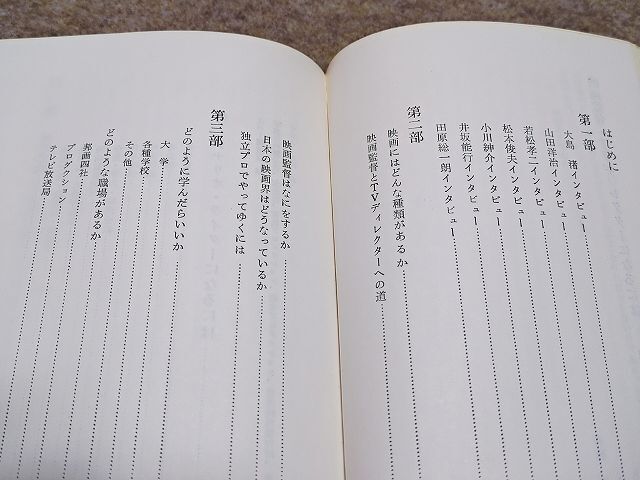 はじめに
第一部
大島 渚インタビュー
山田洋治インタビュー
若松孝二インタビュー
松本俊夫インタビュー
小川紳介インタビュー
井坂能行インタビュー
田原総一朗インタビュー
第二部
映画にはどんな種類があるか
映画監督とTVディレクターへの道
映画監督はなにをするか
日本の映画界はどうなっているか
独立プロでやってゆくには
第三部
どのように学んだらいいか
大 学
各種学校
その他
どのような職場があるか
邦画四社
プロダクション
テレビ放送局